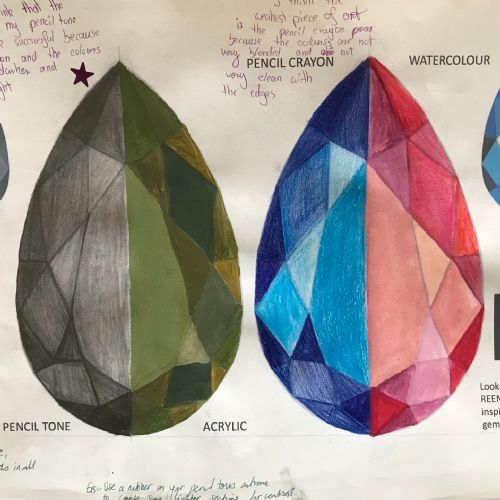 think that the
my pencil tone
successful because
and the colours
darker and
I think the
weakest piece of art
is the pencil crayon
because the colours are not
very blended and not
very clean with
the edges
PENCIL CRAYON
WATERCOLOUR
PENCIL TONE
ACRYLIC
Look
REEN
inspi
gem
in all
EBI - Use a rubber on your pencil tones outcome
to create some lighter sections for contrast.